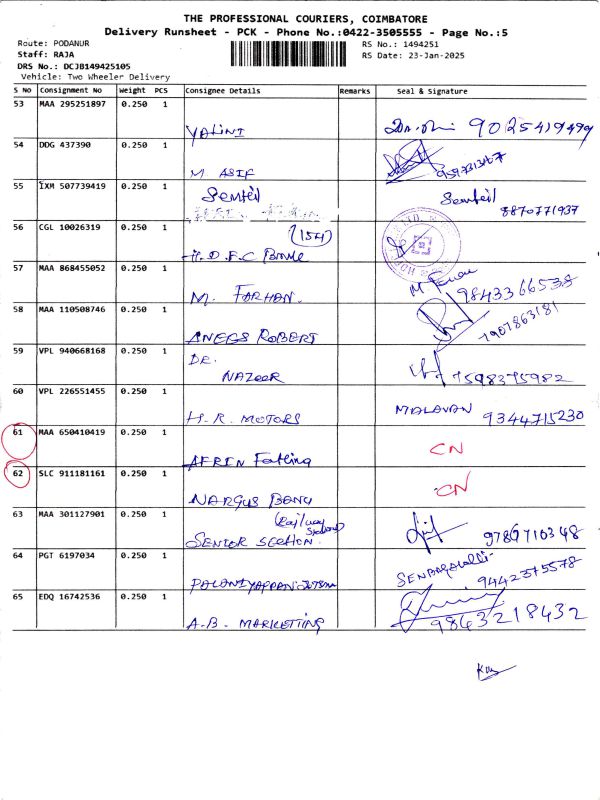 THE PROFESSIONAL COURIERS, COIMBATORE
Delivery Runsheet - PCK - Phone No.:0422-3505555 - Page No.:5
Route: PODANUR RS No.: 1494251
Staff: RAJA RS Date: 23-Jan-2025
DRS No.: DCJB149425105
Vehicle: Two Wheeler Delivery
S No Consignment No Weight PCS Consignee Details Remarks Seal & Signature
53 MAA 295251897 0.250 1
YALINI 9025419499
54 DDG 437390 0.250 1
M ASIF
55 IXM 507739419 0.250 1
Senthil Senthil
8870771937
56 CGL 10026319 0.250 1
(154)
H.D.F.C Bank
57 MAA 868455052 0.250 1
M. FARHAN. 9843366538
58 MAA 110508746 0.250 1
ANEES ROBERT 7907863181
59 VPL 940668168 0.250 1
DR.
NAZEER 7598375982
60 VPL 226551455 0.250 1
H.R. MOTORS MALAVAN 9344715230
61 MAA 650410419 0.250 1
AFRIN CN
62 SLC 911181161 0.250 1
NARGUS BANU CN
63 MAA 301127901 0.250 1
(Railway
SENIOR SECTION. 9789710348
64 PGT 6197034 0.250 1
9442375578
65 EDQ 16742536 0.250 1
A.B. MARKETTING 9843218432